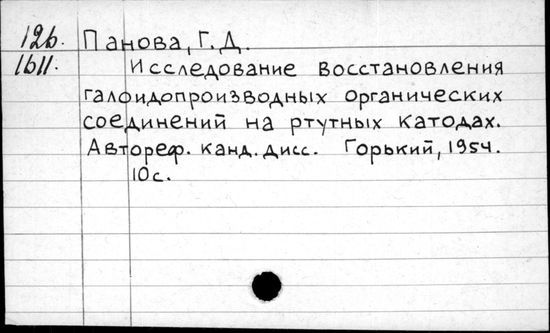 12б. Панова, Г. Д.
1611. Исследование восстановления
галоидопроизводных органических
соединений на ртутных катодах.
Автореф. канд. дисс. Горький, 1954.
10с.